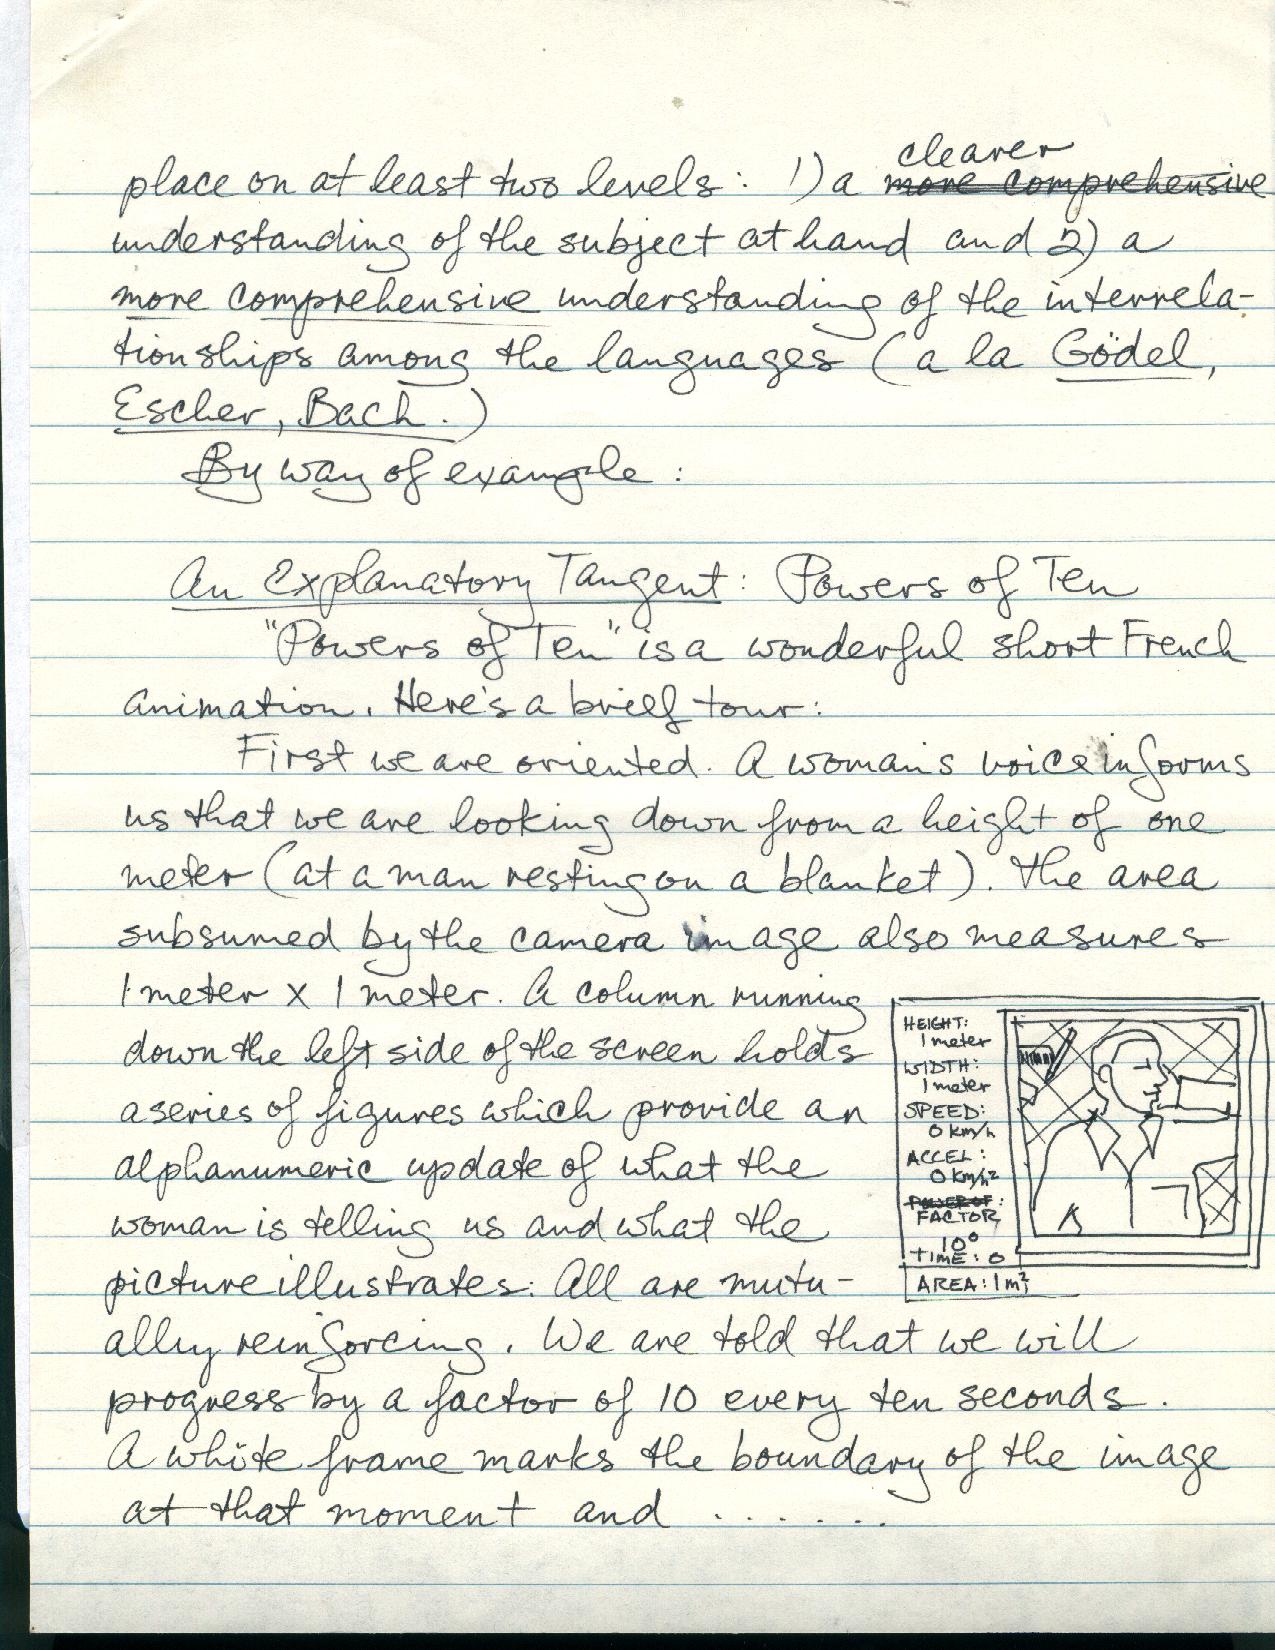 clearer
place on at least two levels: 1) a more comprehensive
understanding of the subject at hand and 2) a
more comprehensive understanding of the interrela-
tionships among the languages (a la Gödel,
Escher, Bach.)
By way of example:
An Explanatory Tangent: Powers of Ten
"Powers of Ten" is a wonderful short French
animation. Here's a brief tour:
First we are oriented. A woman's voice informs
us that we are looking down from a height of one
meter (at a man resting on a blanket). The area
subsumed by the camera image also measures
1 meter x 1 meter. A column running
down the left side of the screen holds
a series of figures which provide an
alphanumeric update of what the
woman is telling us and what the
picture illustrates. All are mutu-
ally reinforcing. We are told that we will
progress by a factor of 10 every ten seconds.
A white frame marks the boundary of the image
at that moment and .......
HEIGHT:
1 meter
WIDTH:
1 meter
SPEED:
0 km/h
ACCEL:
0 km/h²
POWER OF:
FACTOR
10⁰
TIME: 0
AREA: 1m²